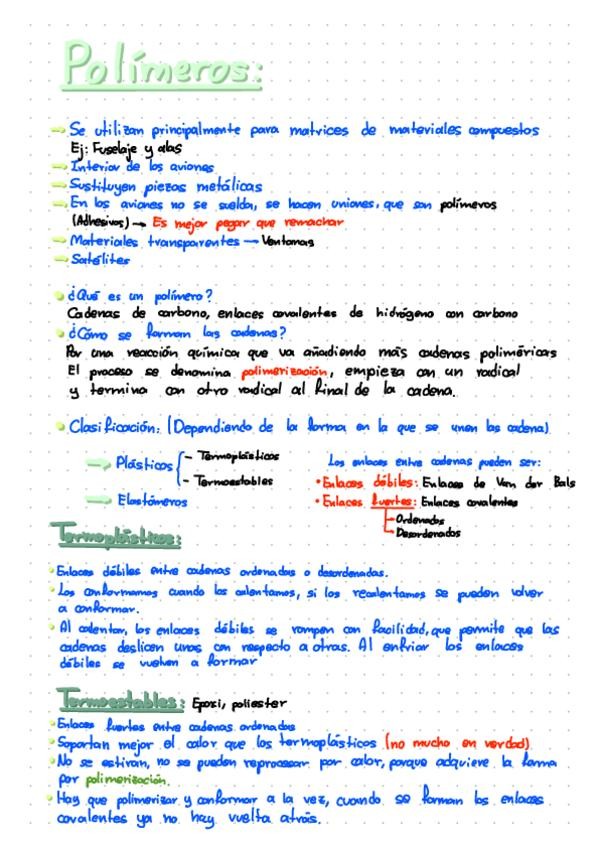 Polímeros:
⇒ Se utilizan principalmente para matrices de materiales compuestos
Ej: Fuselaje y alas
⇒ Interior de los aviones
⇒ Sustituyen piezas metálicas
⇒ En los aviones no se suelda, se hacen uniones, que son polímeros
(Adhesivos) → Es mejor pegar que remachar
⇒ Materiales transparentes → Ventanas
⇒ Satélites
• ¿Qué es un polímero?
Cadenas de carbono, enlaces covalentes de hidrógeno con carbono
• ¿Cómo se forman las cadenas?
Por una reacción química que va añadiendo más cadenas poliméricas
El proceso se denomina polimerización, empieza con un radical
y termina con otro radical al final de la cadena.
• Clasificación: (Dependiendo de la forma en la que se unen las cadena)
⇒ Plásticos { - Termoplásticos
- Termoestables
⇒ Elastómeros
Los enlaces entre cadenas pueden ser:
• Enlaces débiles: Enlaces de Van der Bals
• Enlaces fuertes: Enlaces covalentes
→ Ordenados
→ Desordenados
Termoplásticos:
• Enlaces débiles entre cadenas ordenadas o desordenadas.
• Los conformamos cuando los calentamos, si los recalentamos se pueden volver
a conformar.
• Al calentar, los enlaces débiles se rompen con facilidad, que permite que las
cadenas deslicen unas con respecto a otras. Al enfriar los enlaces
débiles se vuelven a formar
Termoestables: Eposi, poliester
• Enlaces fuertes entre cadenas ordenadas
• Soportan mejor el calor que los termoplásticos (no mucho en verdad)
• No se estiran, no se pueden reprocesar por calor, porque adquiere la forma
por polimerización.
• Hay que polimerizar y conformar a la vez, cuando se forman los enlaces
covalentes ya no hay vuelta atrás.